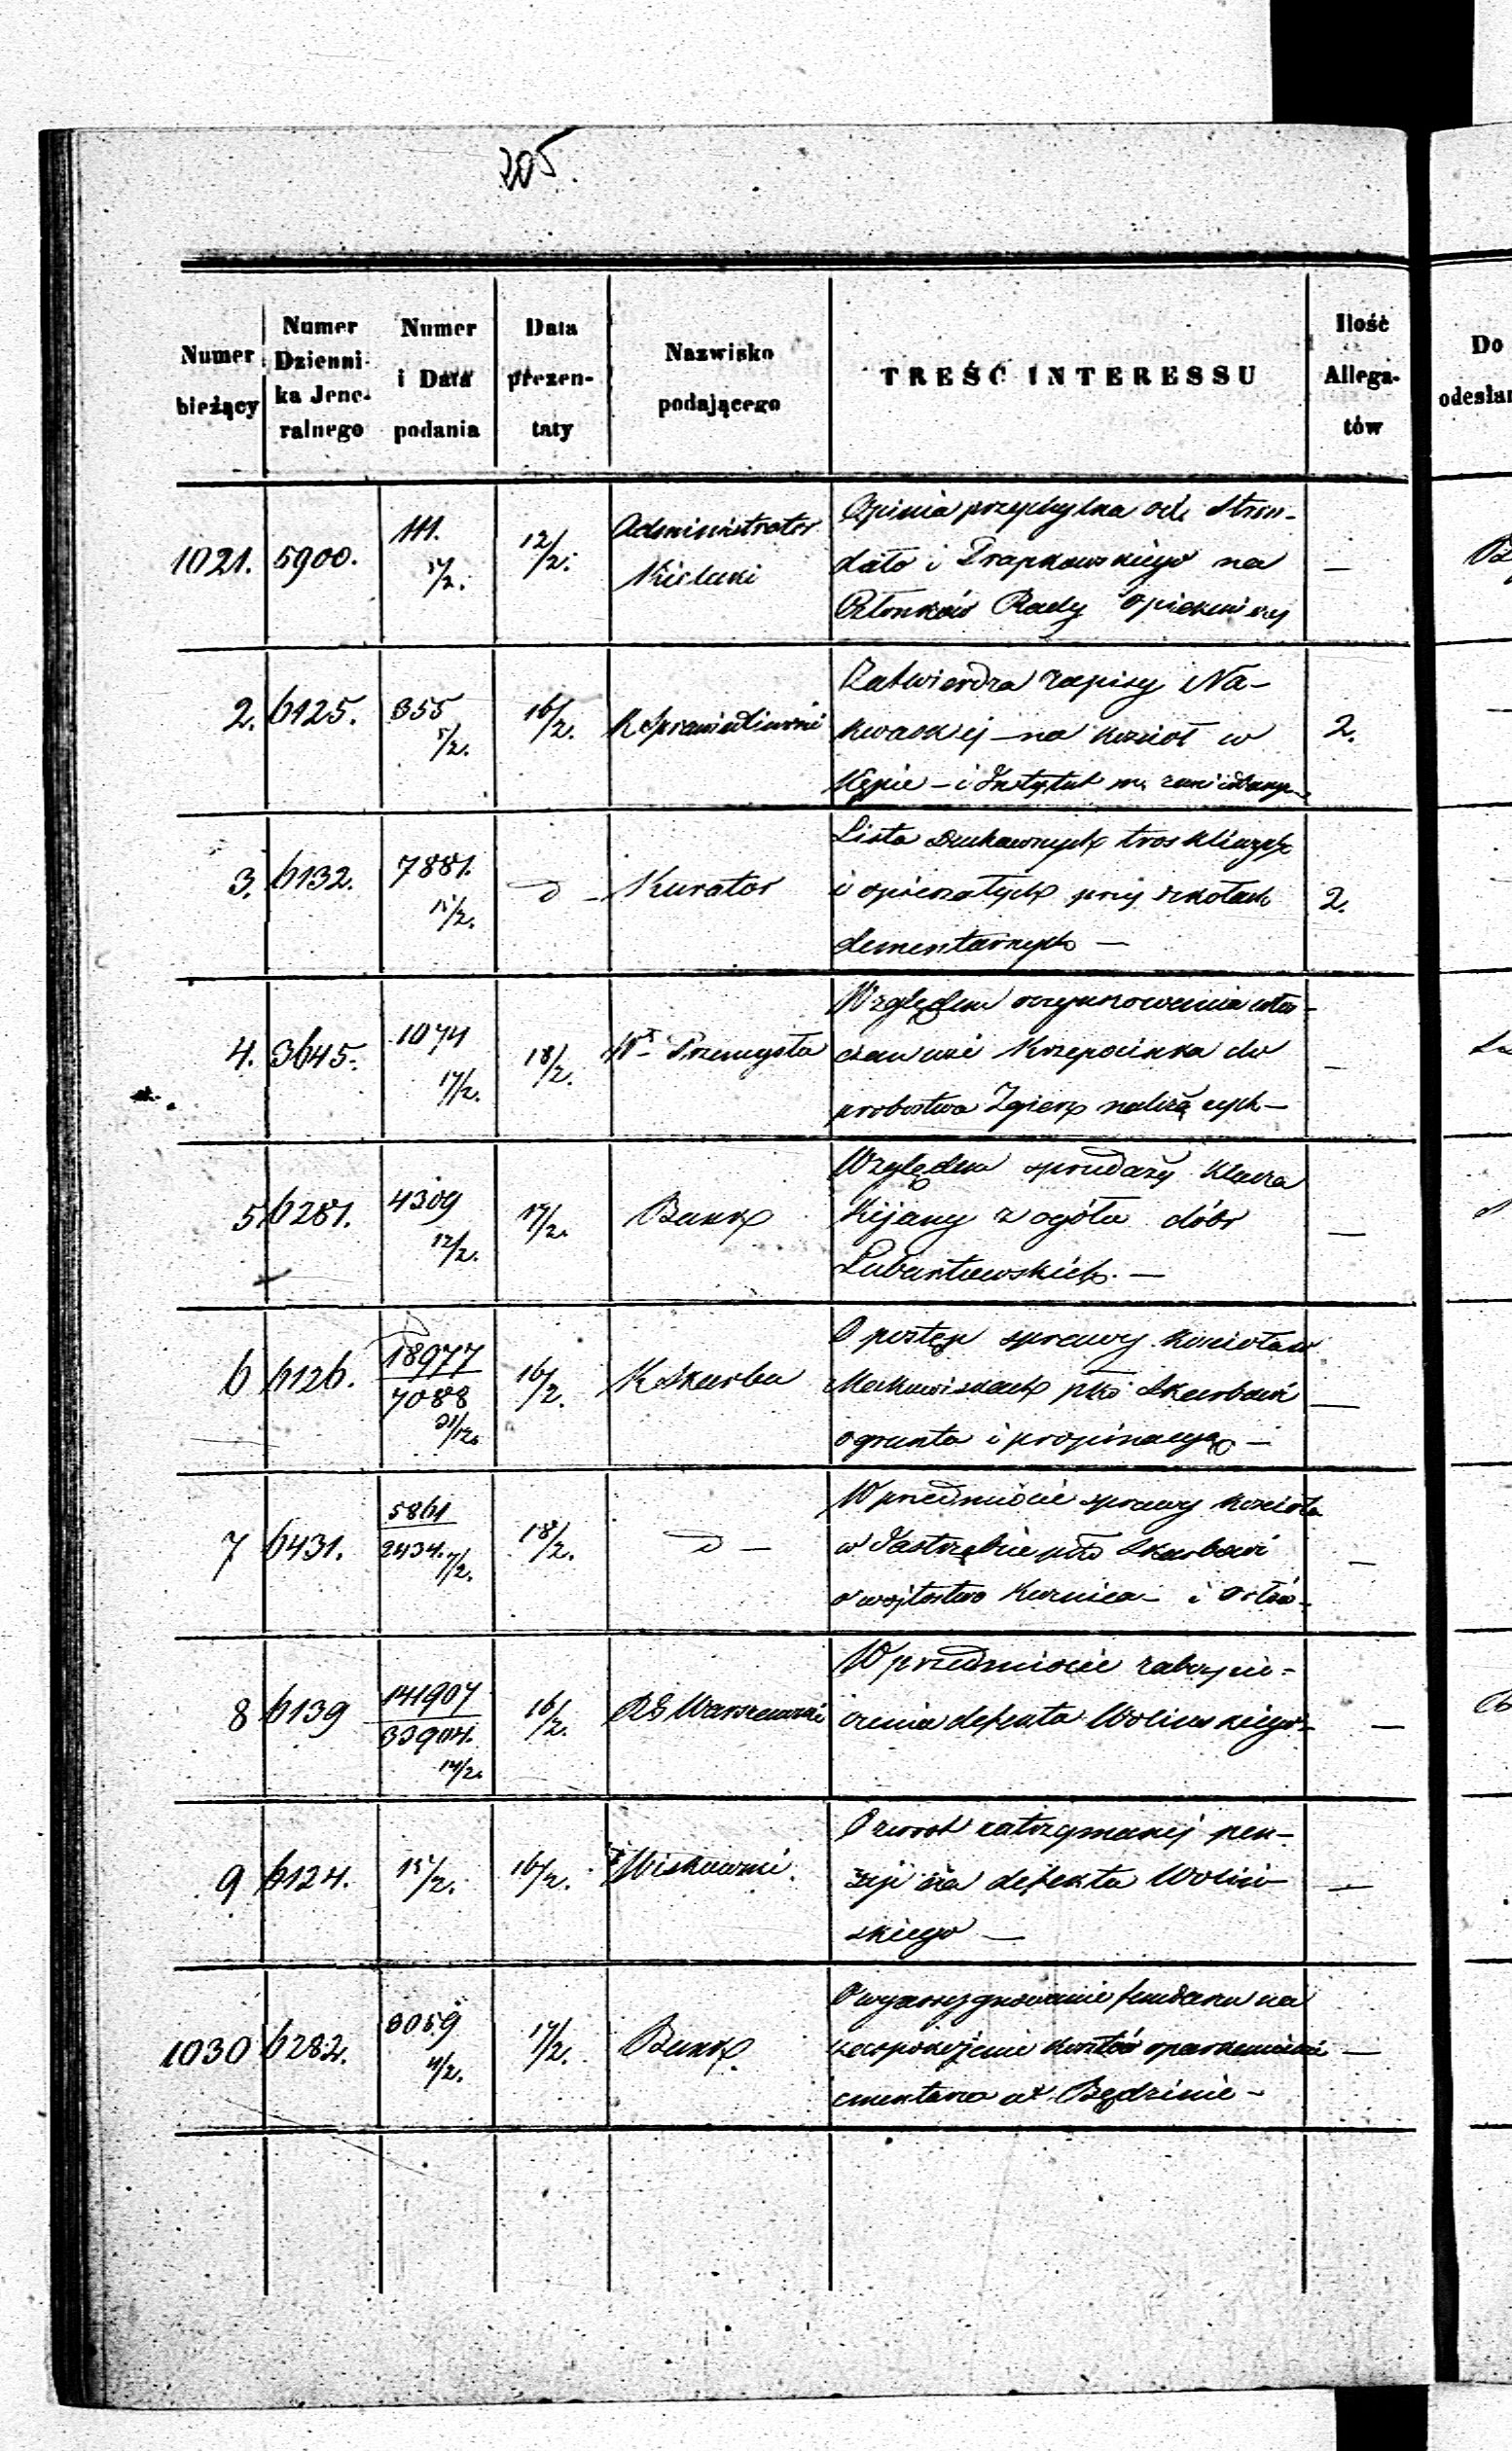 205.
Numer bieżący | Numer Dzienni-ka Jene-ralnego | Numer i Data podania | Data prezen-taty | Nazwisko podającego | TREŚĆ INTERESSU | Ilość Allega-tów | Do
odesłan
1021. | 5900. | 111. | 12/2. | Administrator Kielecki | Opinia przychylna
dato i na
Członków Rady Opiekuńczej | —
2. | 6125. | 355 5/2. | 16/2. | K Sprawiedliwości | Zatwierdza zapisy Na-
kwaskiej na kościoł w
Kępie – i Instytut m. zaniedbanych | 2.
3. | 6132. | 7881. 15/2. | d – | Kurator | Lista Duchownych troskliwych
i opieszałych przy szkołach
elementarnych — | 2.
4. | 3645. | 1074 17/2. | 18/2. | Przemysła | Względem oczynszowania włoś-
cian wsi Krzepocinka do
probostwa Zgierz należących – | —
5. | 6281. | 4309 12/2. | 17/2. | Bank | Względem sprzedaży klucza
Kijany z ogółu dóbr
Lubartowskich. — | —
6 | 6126. | 18977
7088 31/12. | 16/2. | K Skarbu | O postęp sprawy kościoła w
Makowiskach pko Skarbowi
o grunta i propinacyą – | —
7 | 6431. | 5861
2434. 7/2. | 18/2. | d – | W przedmiocie sprawy kościoła
w Jastrzębie pko Skarbowi
o wójtostwo Kuźnica i | —
8 | 6139 | 141907
33904. 14/2. | 16/2. | RG Warszawski | W przedmiocie zabezpie-
czenia defektu Wolińskiego – | —
9 | 6124. | 15/2. | 16/2. | | O zwrot zatrzymanej pen-
syi za defekta Woliń-
skiego — | —
1030 | 6282. | 3059 11/2. | 17/2. | Bank. | O wyassygnowanie funduszu na
zaspokojenie kosztów oparkanienia
cmentarza w Będzinie – | —